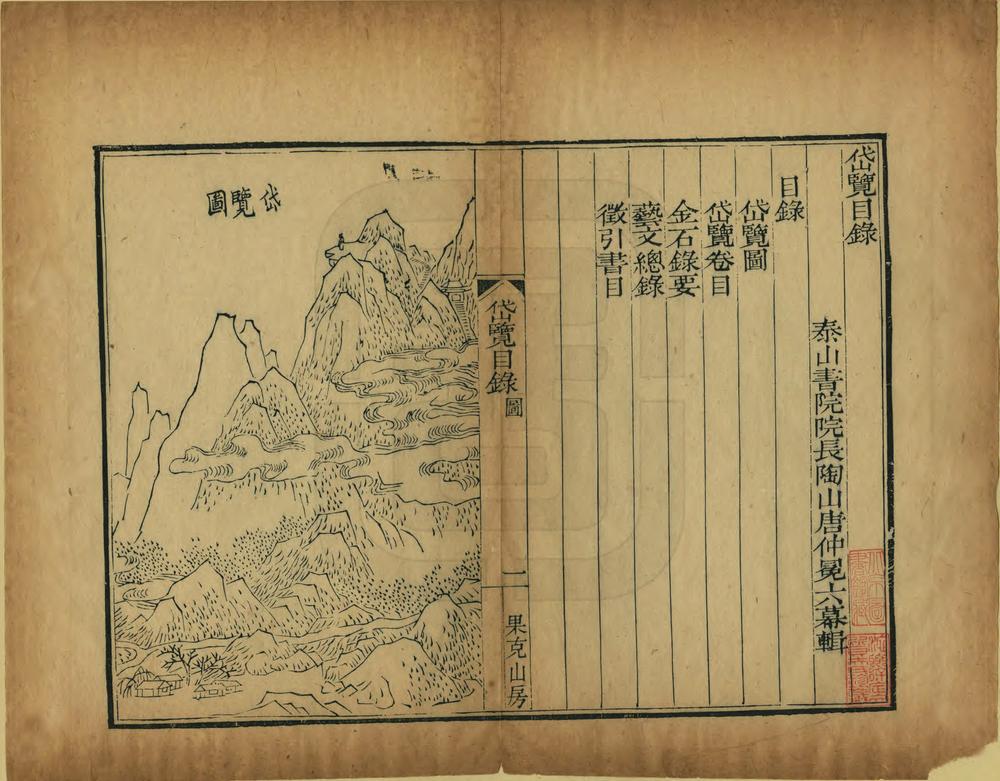 岱覽目錄
泰山書院院長陶山唐仲冕六幕輯
目錄
岱覽圖
岱覽卷目
金石錄要
藝文總錄
徵引書目
岱覽目錄 圖
一
果克山房
岱覽圖